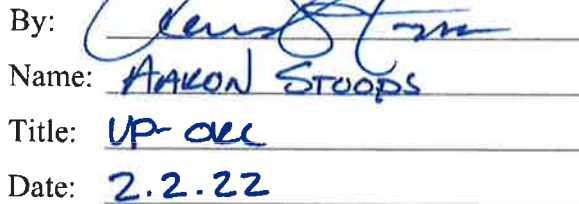 By:
Name: AARON STOOPS
Title: VP-
Date: 2.2.22